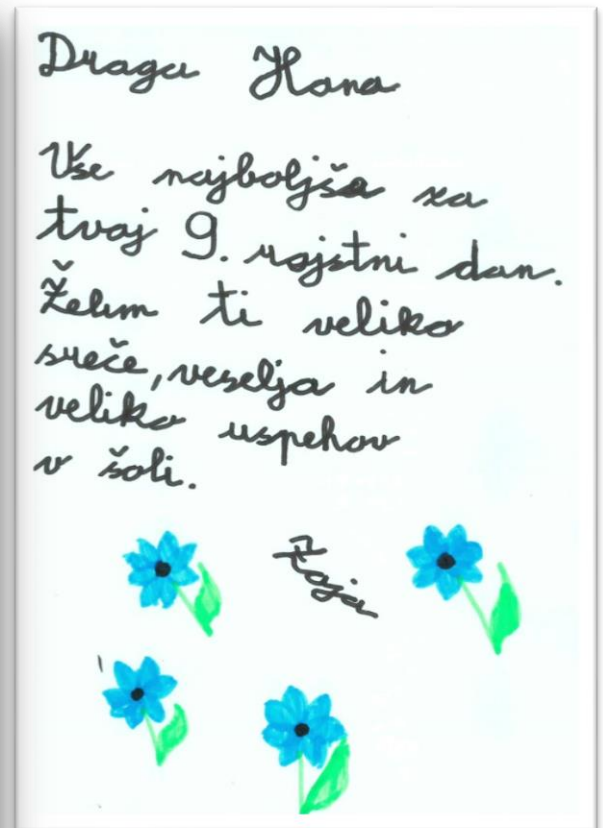 Draga Hana
Vse najboljše za
tvoj 9. rojstni dan.
Želim ti veliko
sreče, veselja in
veliko uspehov
v šoli.